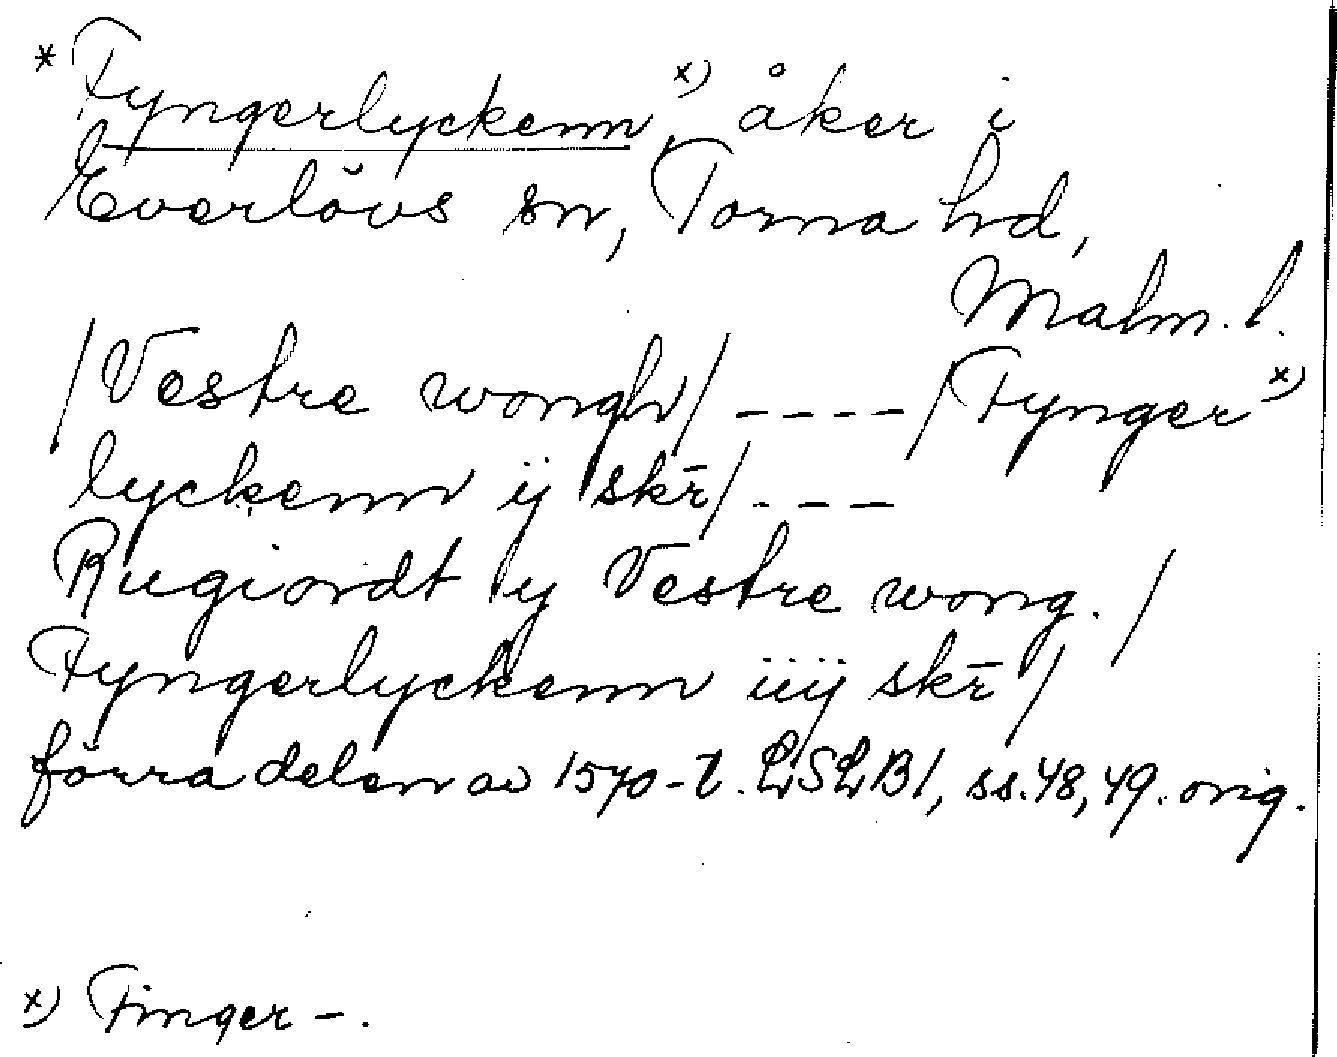 * Fyngerlyckenn x), åker i
Everlövs sn, Torna hd,
Malm. l.
/Vestre wongh/ ---- /Fynger x)
lyckenn ij skr̄/ ---
Rugiordt y Vestre wong. /
Fyngerlyckenn iiij skr̄/
förra delen av 1570-t. LSLB1, ss. 48, 49. orig.
x) Finger -.